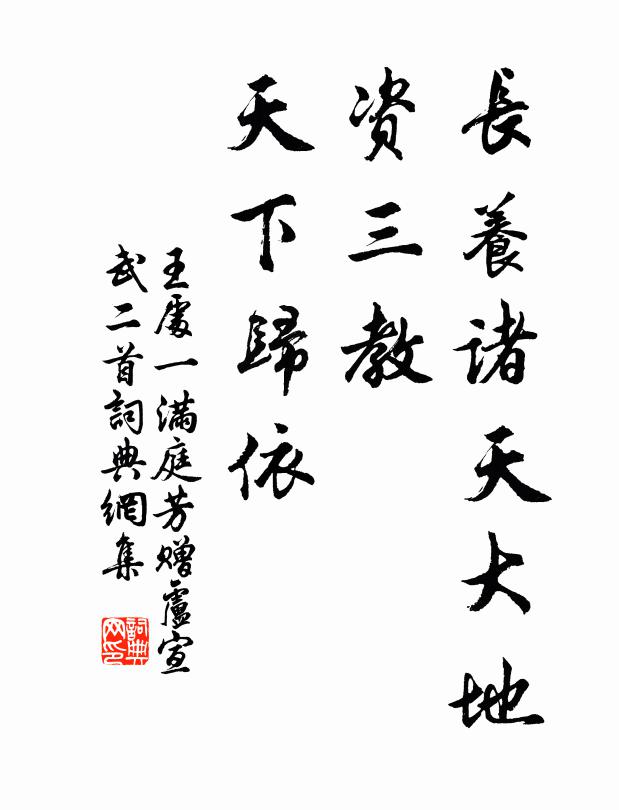 長養諸天大地
資三教
天下歸依
王處一滿庭芳赠盧宣
武二首詞典網集
詞典网印